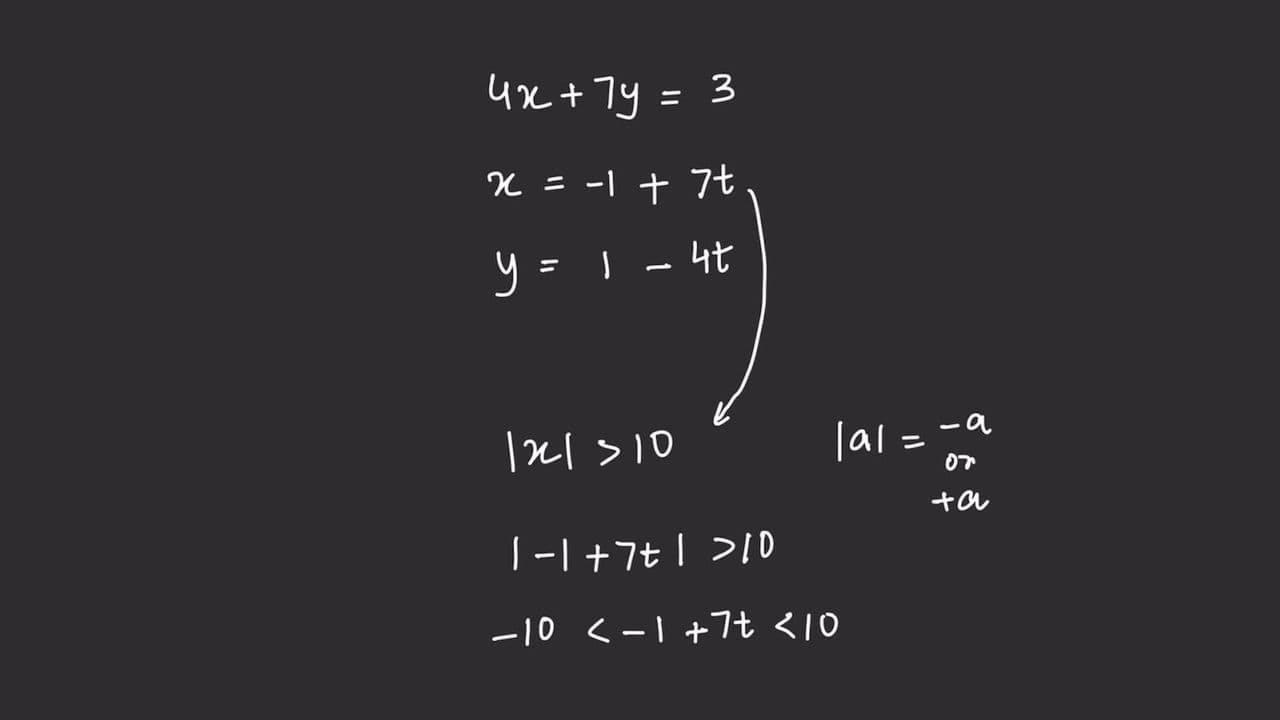 4x + 7y = 3
x = -1 + 7t
y = 1 - 4t
|x| > 10
|a| = -a
or
+a
|-1 + 7t| > 10
-10 < -1 + 7t < 10